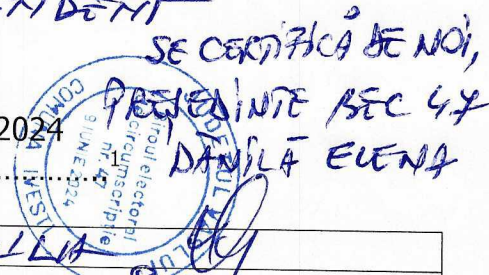 SE CERTIFICĂ DE NOI,
PREȘEDINTE BEC 47
DANILĂ ELENA
2024
1
Biroul electoral
de circumscripție
nr. 47
9 IUNIE 2024
COMUNA